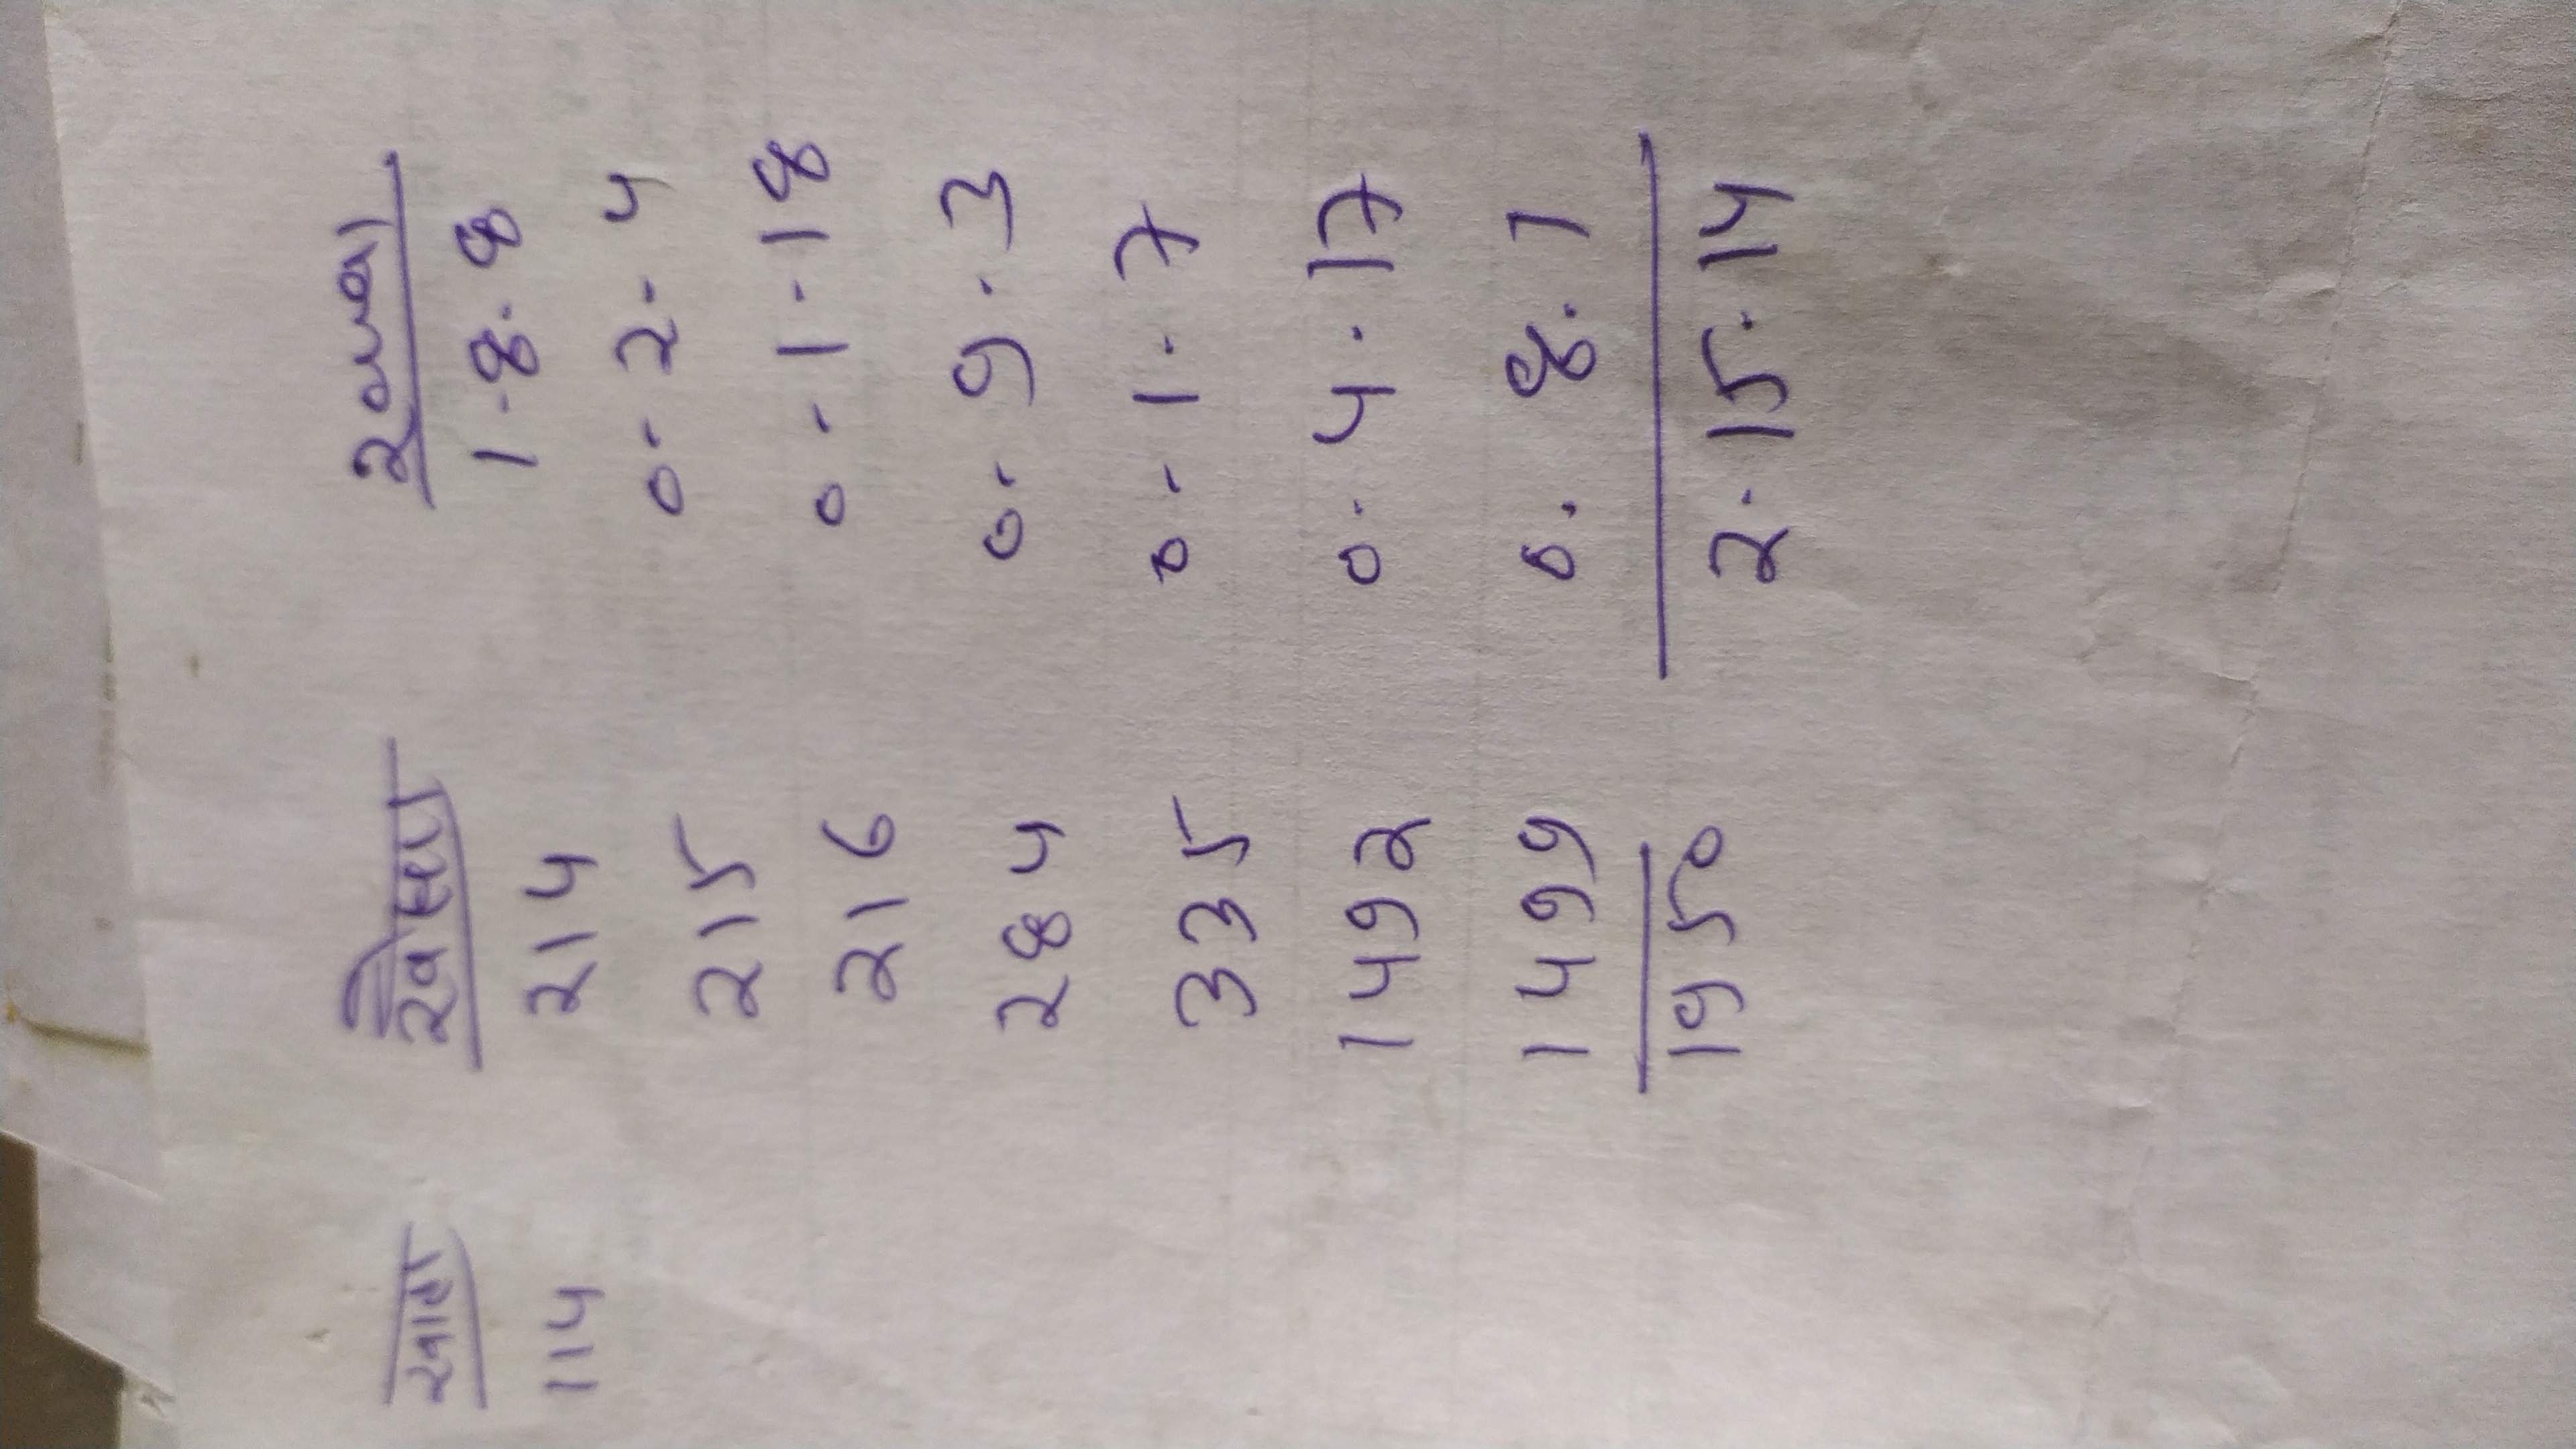 खाता खेसरा रकवा
114 214 1-8-8
215 0-2-4
216 0-1-18
284 0-9-3
335 0-1-7
1492 0-4-17
1499 0.8.1
1950 2-15-14